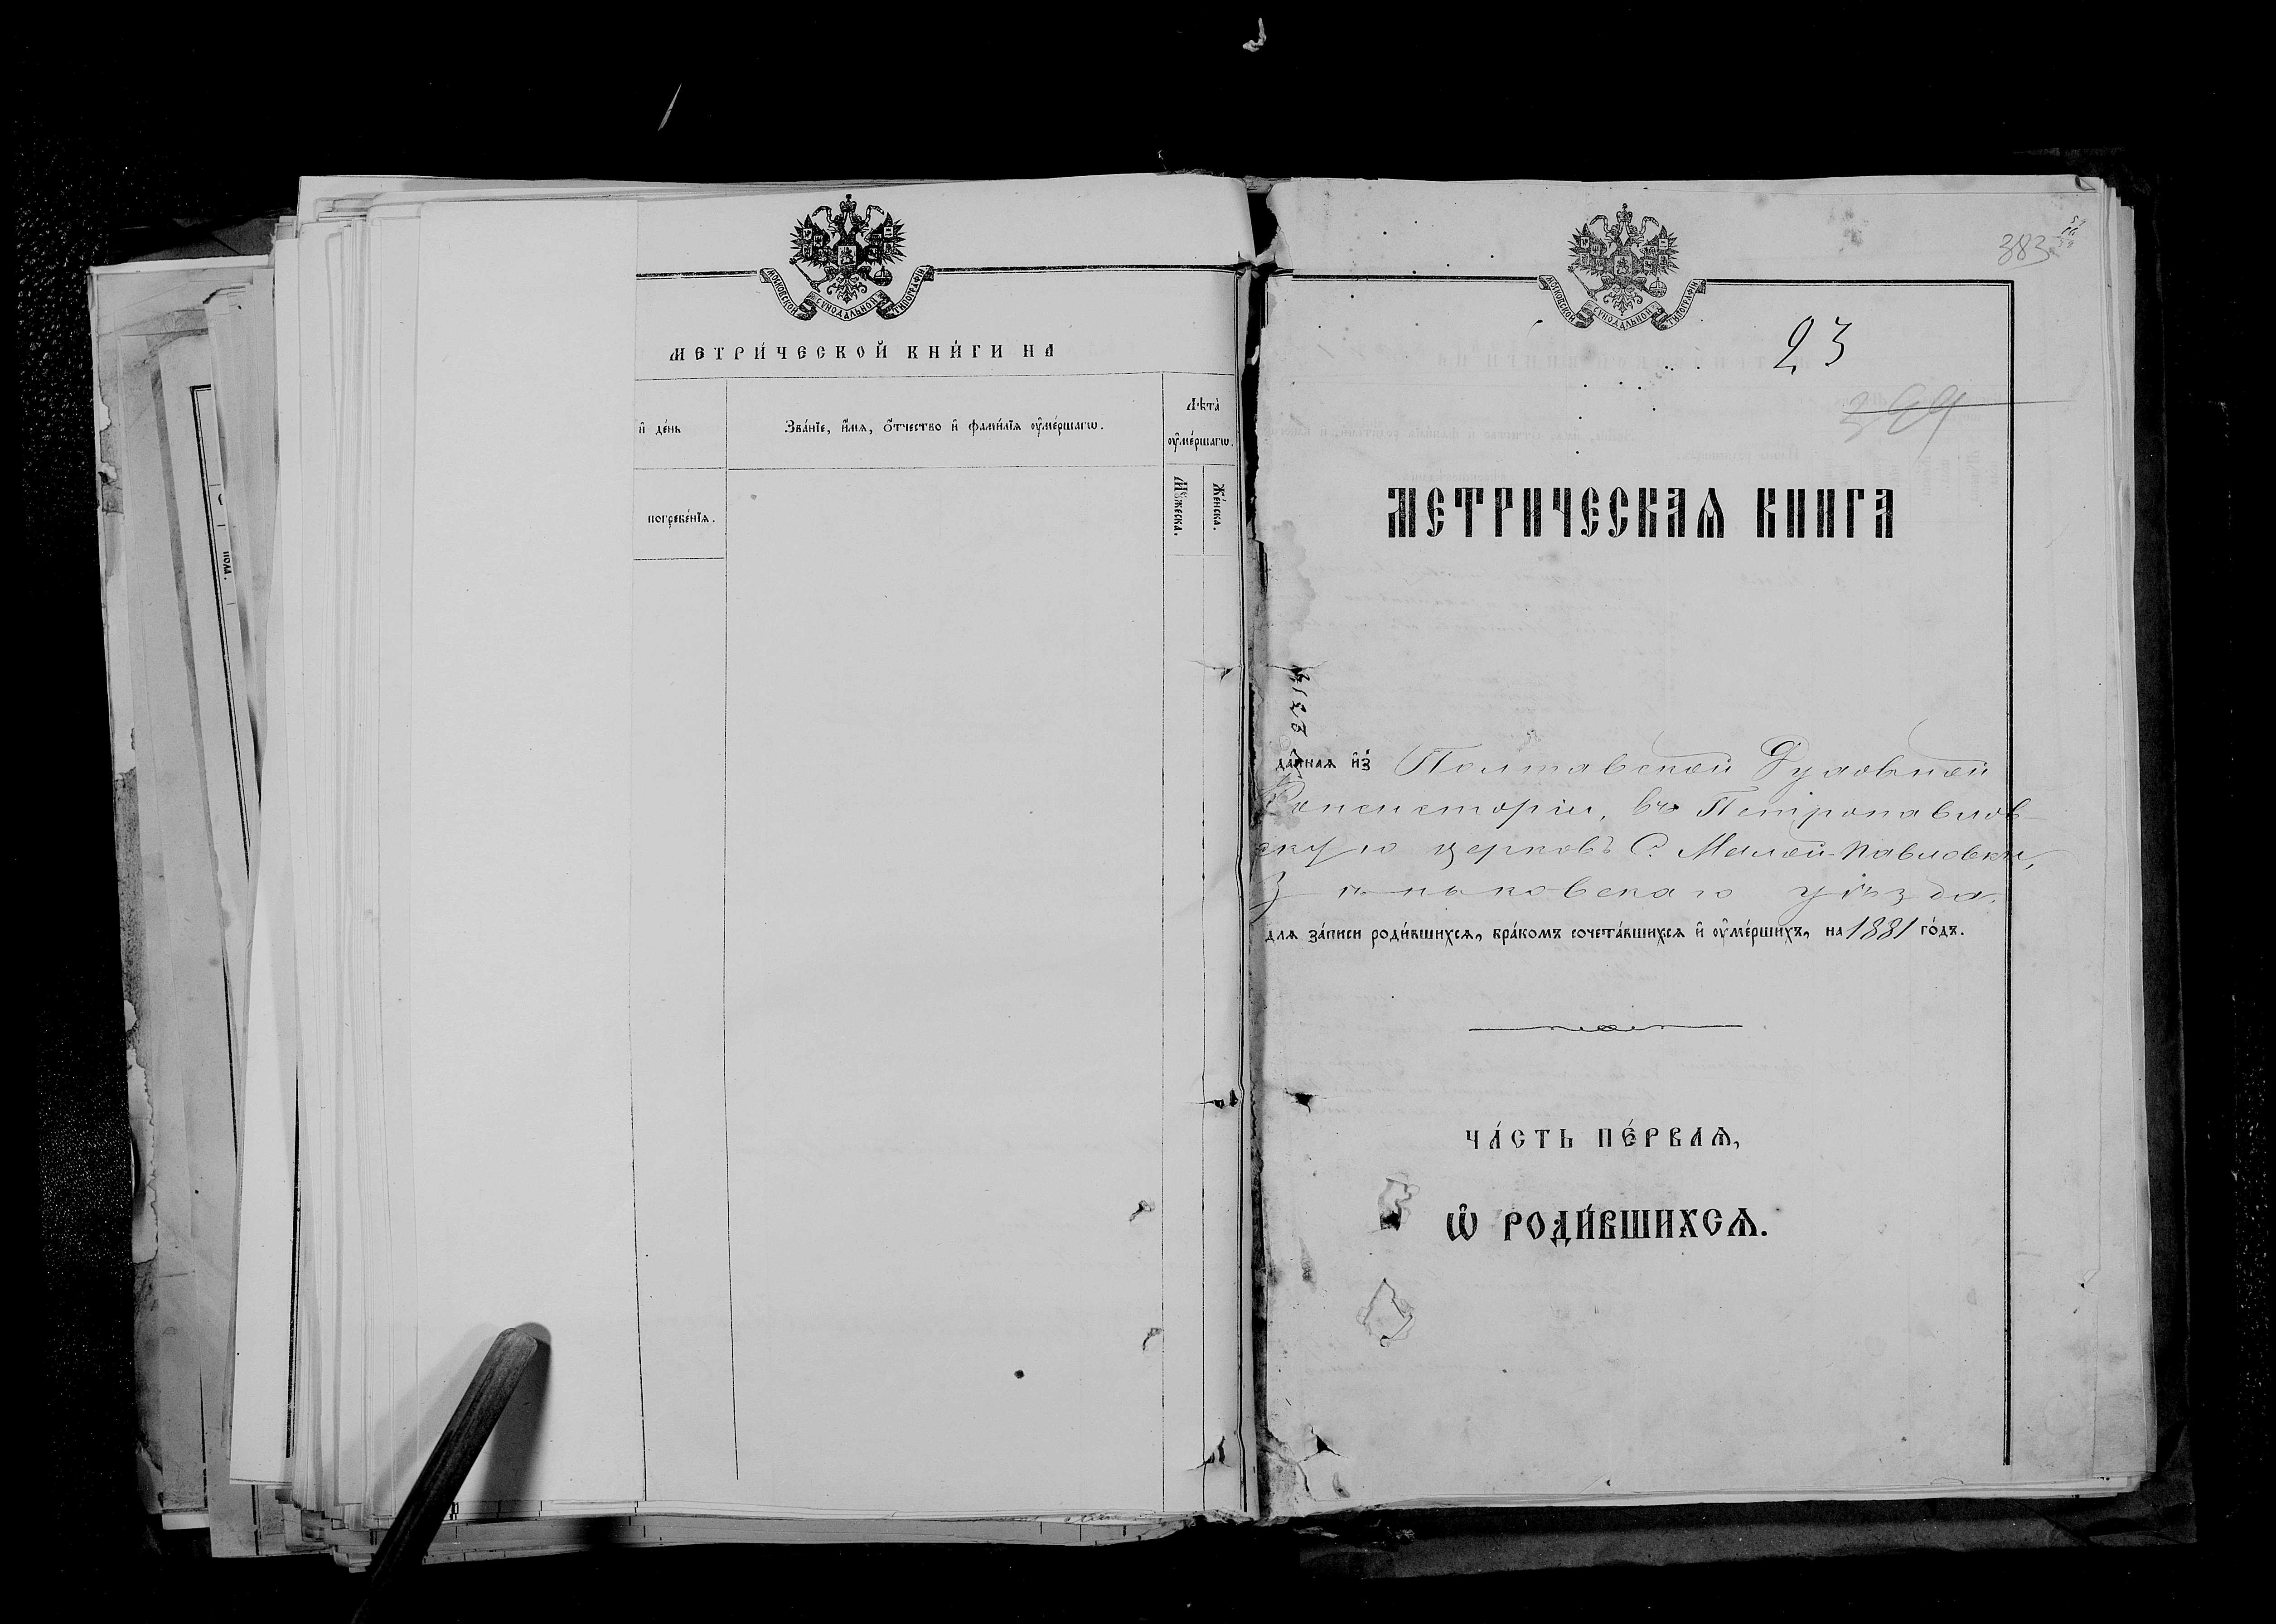 МОСКОВСКОЙ СѴНОДАЛЬНОЙ ТИПОГРАФІИ
МЕТРИ́ЧЕСКОЙ КНИ́ГИ НА
и҆ де́нь
погребе́нїѧ.
Зва́нїе, и҆́мѧ, ѻ҆́тчество и҆ фами́лїѧ ᲂу҆ме́ршагѡ.
Лѣта̀
ᲂу҆ме́ршагѡ.
Мꙋ́жеска.
Же́нска.
пола.
МОСКОВСКОЙ СѴНОДАЛЬНОЙ ТИПОГРАФІИ
383
23
МЕТРИЧЕСКАѦ КНИГА
да́ннаѧ и҆з̾ Полтавской Духовной
Консисторіи, въ Петропавлов-
скую церковь С. Малой-Павловки,
Зѣньковскаго уѣзда.
длѧ за́писи роди́вшихсѧ, бра́комъ сочета́вшихсѧ и҆ ᲂу҆ме́ршихъ, на 1881 го́дъ.
ЧА́СТЬ ПЕ́РВАѦ,
Ѽ РОДИ́ВШИХСѦ.